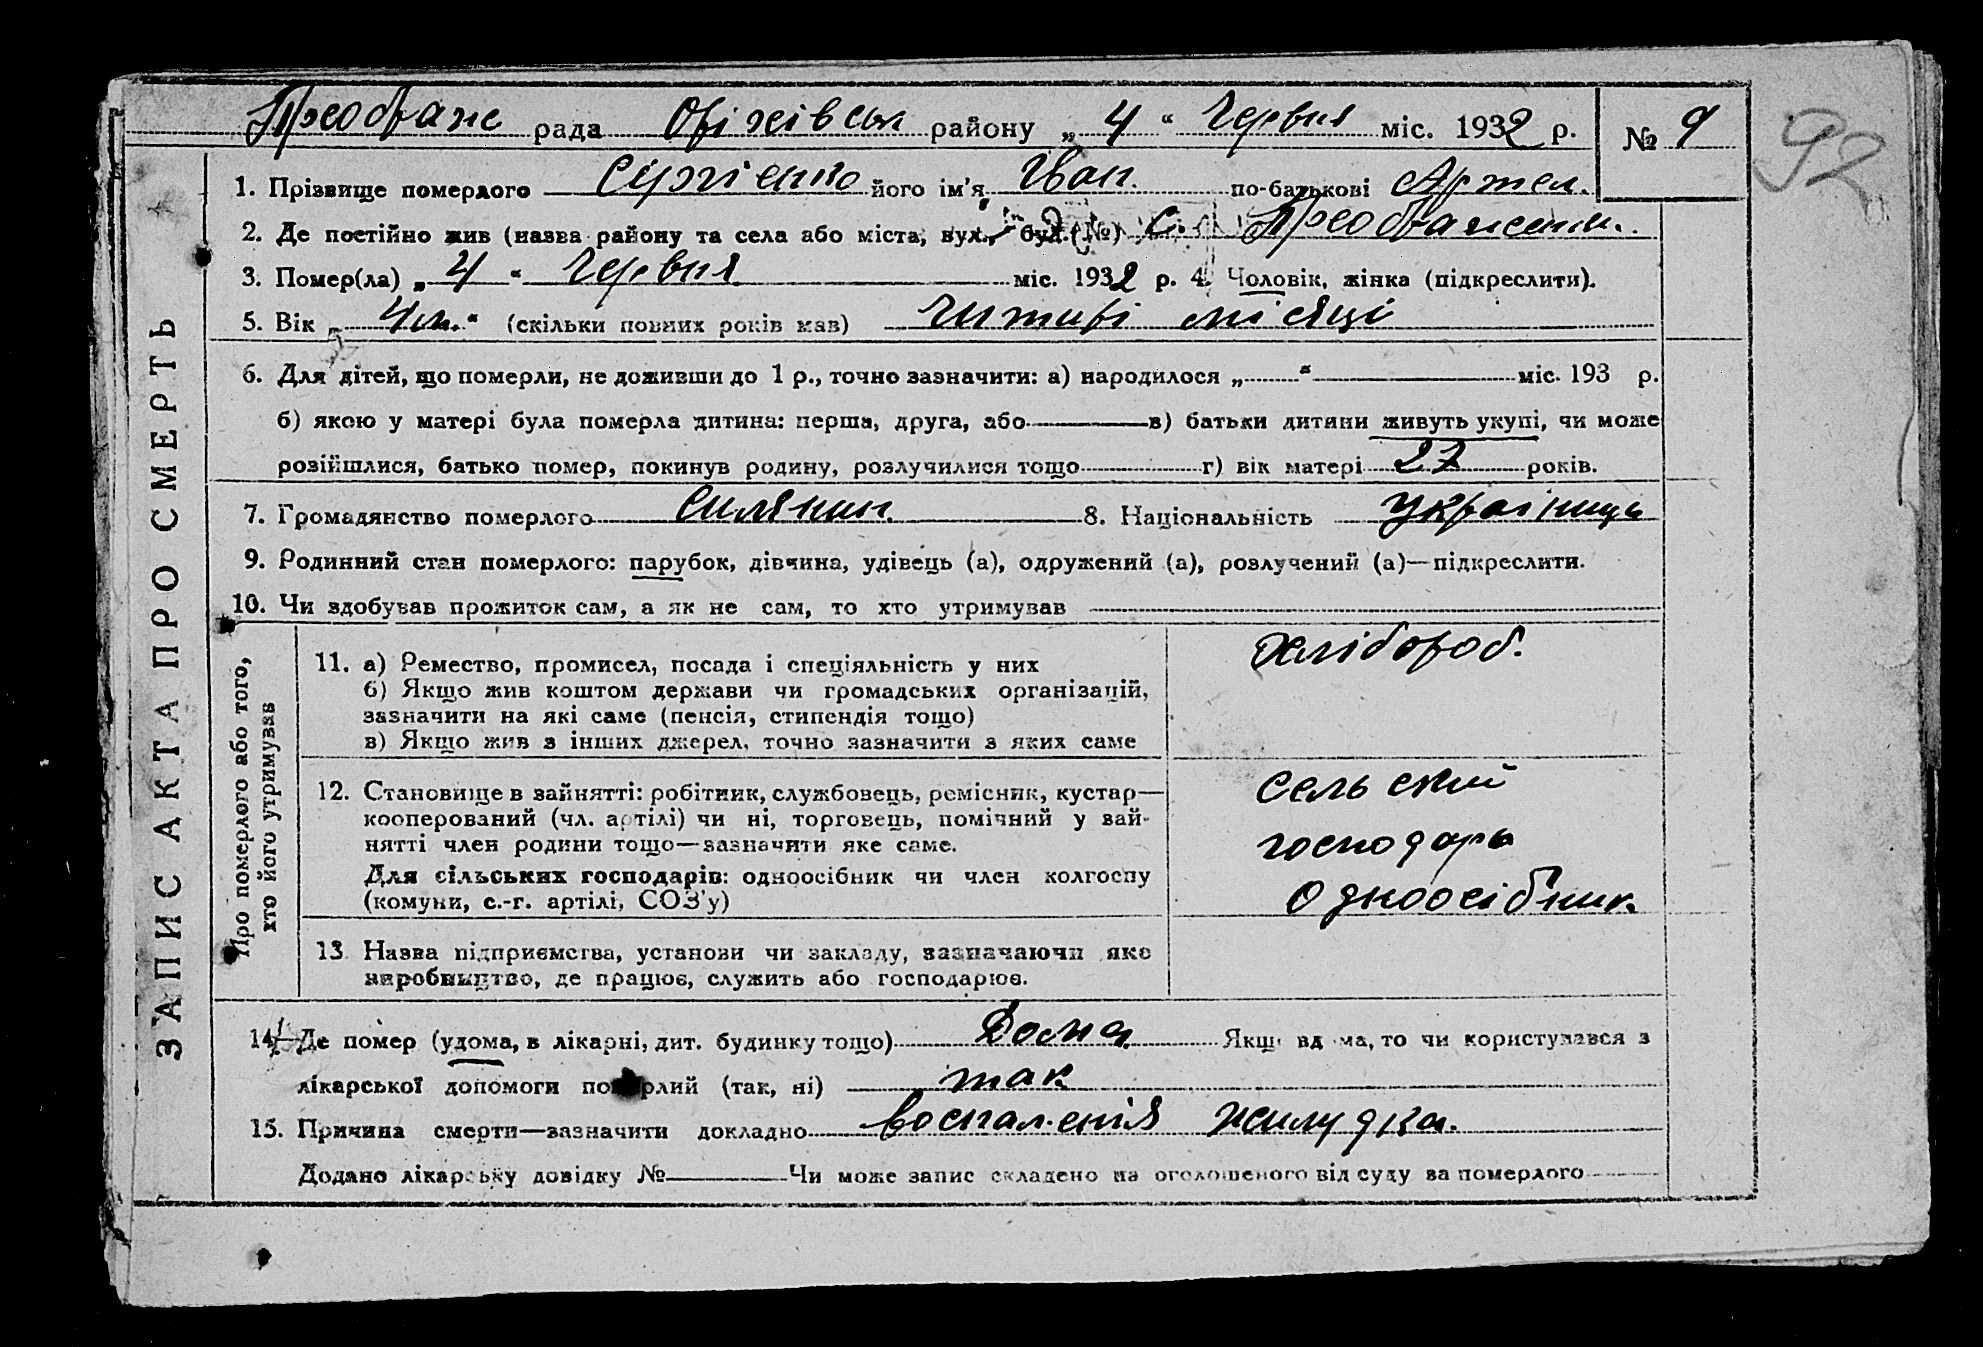 ЗАПИС АКТА ПРО СМЕРТЬ
Преображ рада Оріхівськ району „ 4 “ Червня міс. 1932 р. № 9
92
1. Прізвище померлого Сіргієнко його ім'я Іван. по-батькові Артем.
2. Де постійно жив (назва району та села або міста, вул., буд. №) с. Преображенн.
3. Помер(ла) „ 4 “ Червня міс. 1932 р. 4. Чоловік, жінка (підкреслити).
5. Вік „ 4 м. “ (скільки повних років мав) Читирі місяці
6. Для дітей, що померли, не доживши до 1 р., точно зазначити: а) народилося „ “ міс. 193 р.
б) якою у матері була померла дитина: перша, друга, або в) батьки дитини живуть укупі, чи може
розійшлися, батько помер, покинув родину, розлучилися тощо г) вік матері 27 років.
7. Громадянство померлого Силянин. 8. Національність Українищь
9. Родинний стан померлого: парубок, дівчина, удівець (а), одружений (а), розлучений (а)—підкреслити.
10. Чи здобував прожиток сам, а як не сам, то хто утримував
Про померлого або того,
хто його утримував
11. а) Ремество, промисел, посада і спеціяльність у них
б) Якщо жив коштом держави чи громадських організацій,
зазначити на які саме (пенсія, стипендія тощо)
в) Якщо жив з інших джерел, точно зазначити з яких саме
Хлібороб.
12. Становище в зайнятті: робітник, службовець, ремісник, кустар—
кооперований (чл. артілі) чи ні, торговець, помічний у зай-
нятті член родини тощо—зазначити яке саме.
Для сільських господарів: одноосібник чи член колгоспу
(комуни, с.-г. артілі, СОЗ'у)
Сельський
господарь
Одноосібник.
13. Назва підприємства, установи чи закладу, зазначаючи яке
виробництво, де працює, служить або господарює.
14. Де помер (удома, в лікарні, дит. будинку тощо) Дома. Якщо вдома, то чи користувався з
лікарської допомоги померлий (так, ні) так
15. Причина смерти—зазначити докладно воспаленія жилудка.
Додано лікарську довідку № Чи може запис складено на оголошеного від суду за померлого